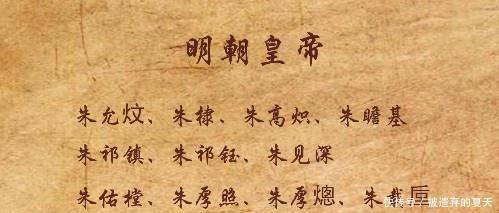 明朝皇帝
朱允炆、朱棣、朱高炽、朱瞻基
朱祁镇、朱祁钰、朱见深
朱佑樘、朱厚照、朱厚熜、朱载垕
快传号/被遗弃的夏天